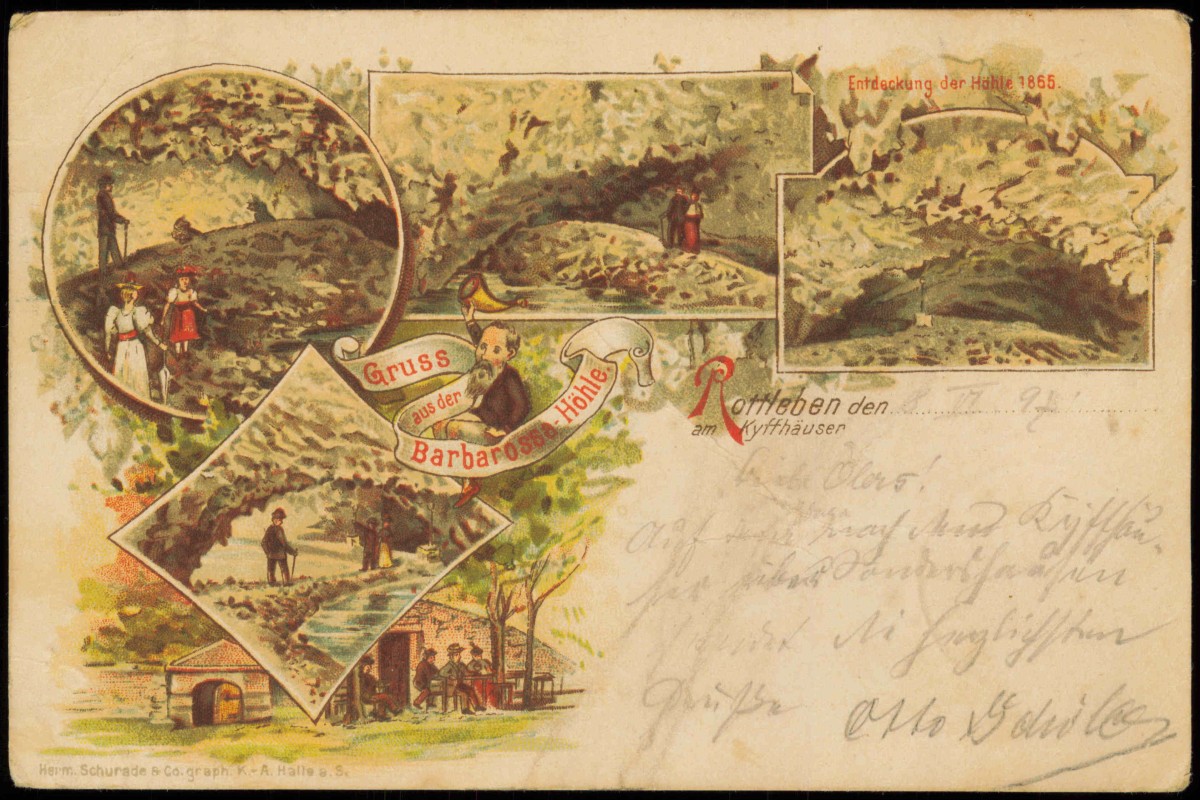 Entdeckung der Höhle 1865.
Gruss
aus der
Barbarossa-Höhle.
Rottleben den 8. VI 97
am Kyffhäuser
nach dem Kyffhäu-
ser über Sondershausen
sendet die herzlichsten
Grüße Otto
Herm. Schurade & Co. graph. K.-A. Halle a. S.